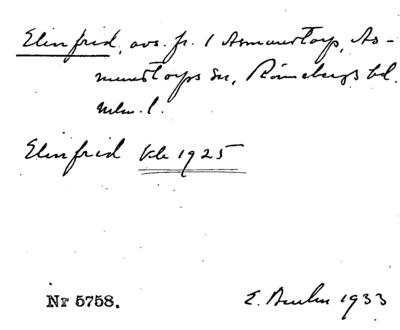 Elinfrid, avs. fr. 1 Asmundtorp, As-
mundtorps sn, Rönnebergs hd.
Mlm. l.
Elinfrid Kb 1925
Nr 5758.
E. 1933